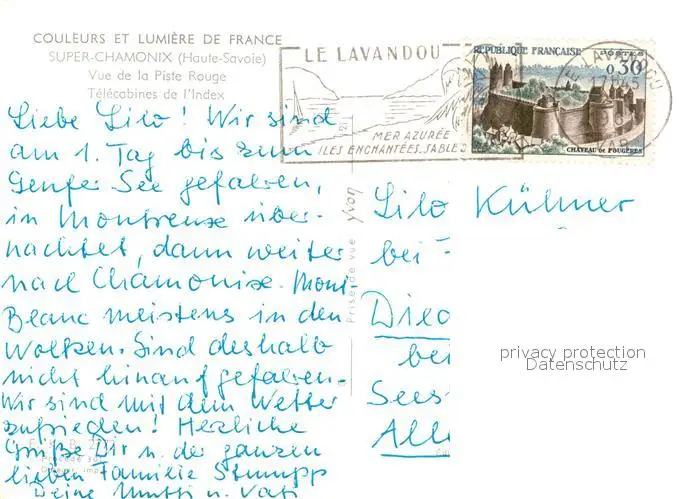 COULEURS ET LUMIÈRE DE FRANCE
SUPER-CHAMONIX (Haute-Savoie)
Vue de la Piste Rouge
Télécabines de l'Index
LE LAVANDOU
MER AZURÉE
ILES ENCHANTÉES. SABLE
RÉPUBLIQUE FRANÇAISE
POSTES
0,30
CHÂTEAU de FOUGÈRES
VAR
Liebe Lilo! Wir sind
am 1. Tag bis zum
Genfer See gefahren,
in Montreux über-
nachtet, dann weiter
nach Chamonix. Mont-
Blanc meistens in den
Wolken. Sind deshalb
nicht hinauf gefahren.
Wir sind mit dem Wetter
zufrieden! Herzliche
Grüße Dir u. der ganzen
lieben Familie Stumpp
Deine Mutti u. Vati
Prise de vue yvon
Lilo Kühner
bei
privacy protection
Datenschutz